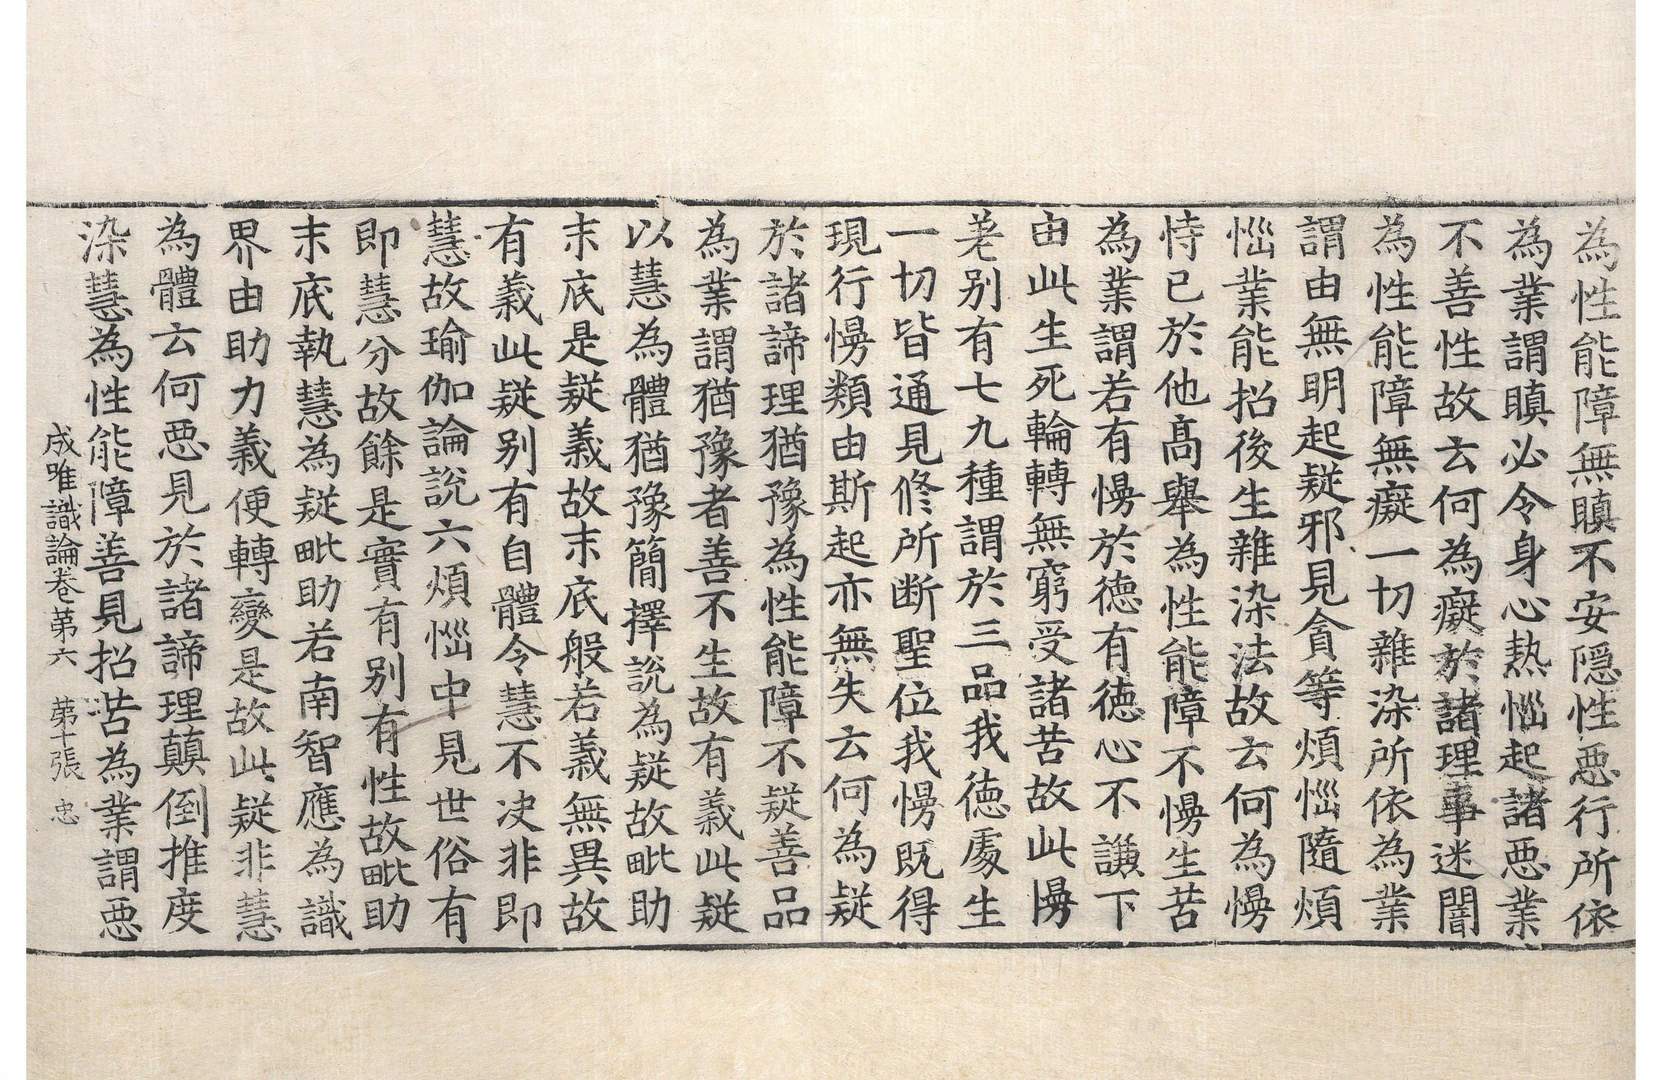 為性能障無瞋不安隱性惡行所依
為業謂瞋必令身心熱惱起諸惡業
不善性故云何為癡於諸理事迷闇
為性能障無癡一切雜染所依為業
謂由無明起疑邪見貪等煩惱隨煩
惱業能招後生雜染法故云何為慢
恃已於他高舉為性能障不慢生苦
為業謂若有慢於德有德心不謙下
由此生死輪轉無窮受諸苦故此慢
差別有七九種謂於三品我德處生
一切皆通見修所断聖位我慢既得
現行慢類由斯起亦無失云何為疑
於諸諦理猶豫為性能障不疑善品
為業謂猶豫者善不生故有義此疑
以慧為體猶豫簡擇說為疑故毗助
末底是疑義故末底般若義無異故
有義此疑別有自體令慧不决非即
慧故瑜伽論說六煩惱中見世俗有
即慧分故餘是實有別有性故毗助
末底執慧為疑毗助若南智應為識
界由助力義便轉變是故此疑非慧
為體云何惡見於諸諦理顛倒推度
染慧為性能障善見招苦為業謂惡
成唯識論卷第六 第十張 忠